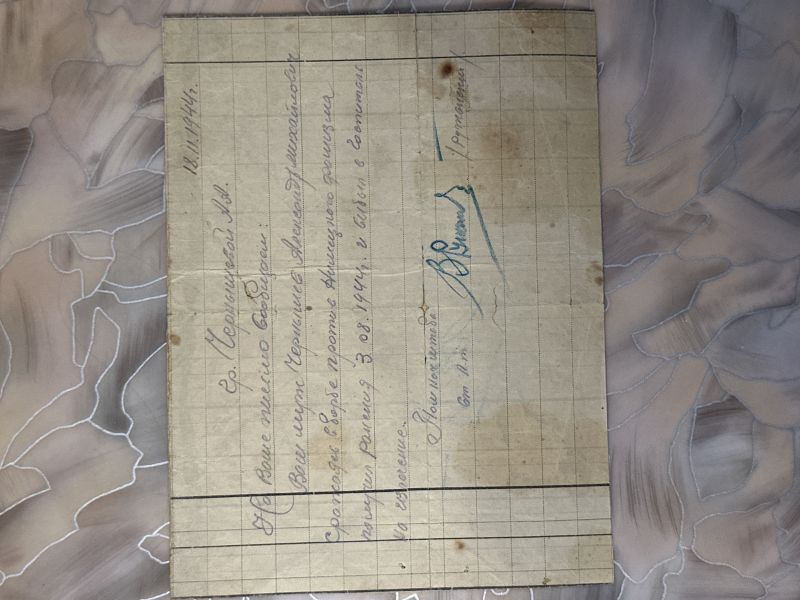 18.11.1944г.
Гр. Чернышевой А.А.
На Ваше письмо сообщаем:
Ваш муж Чернышев Александр Михайлович
сражаясь в борьбе против Немецкого фашизма
получил ранения 3.08.1944г. и выбыл в Госпиталь
на излечение.
Пом нач штаба
Ст. л-т